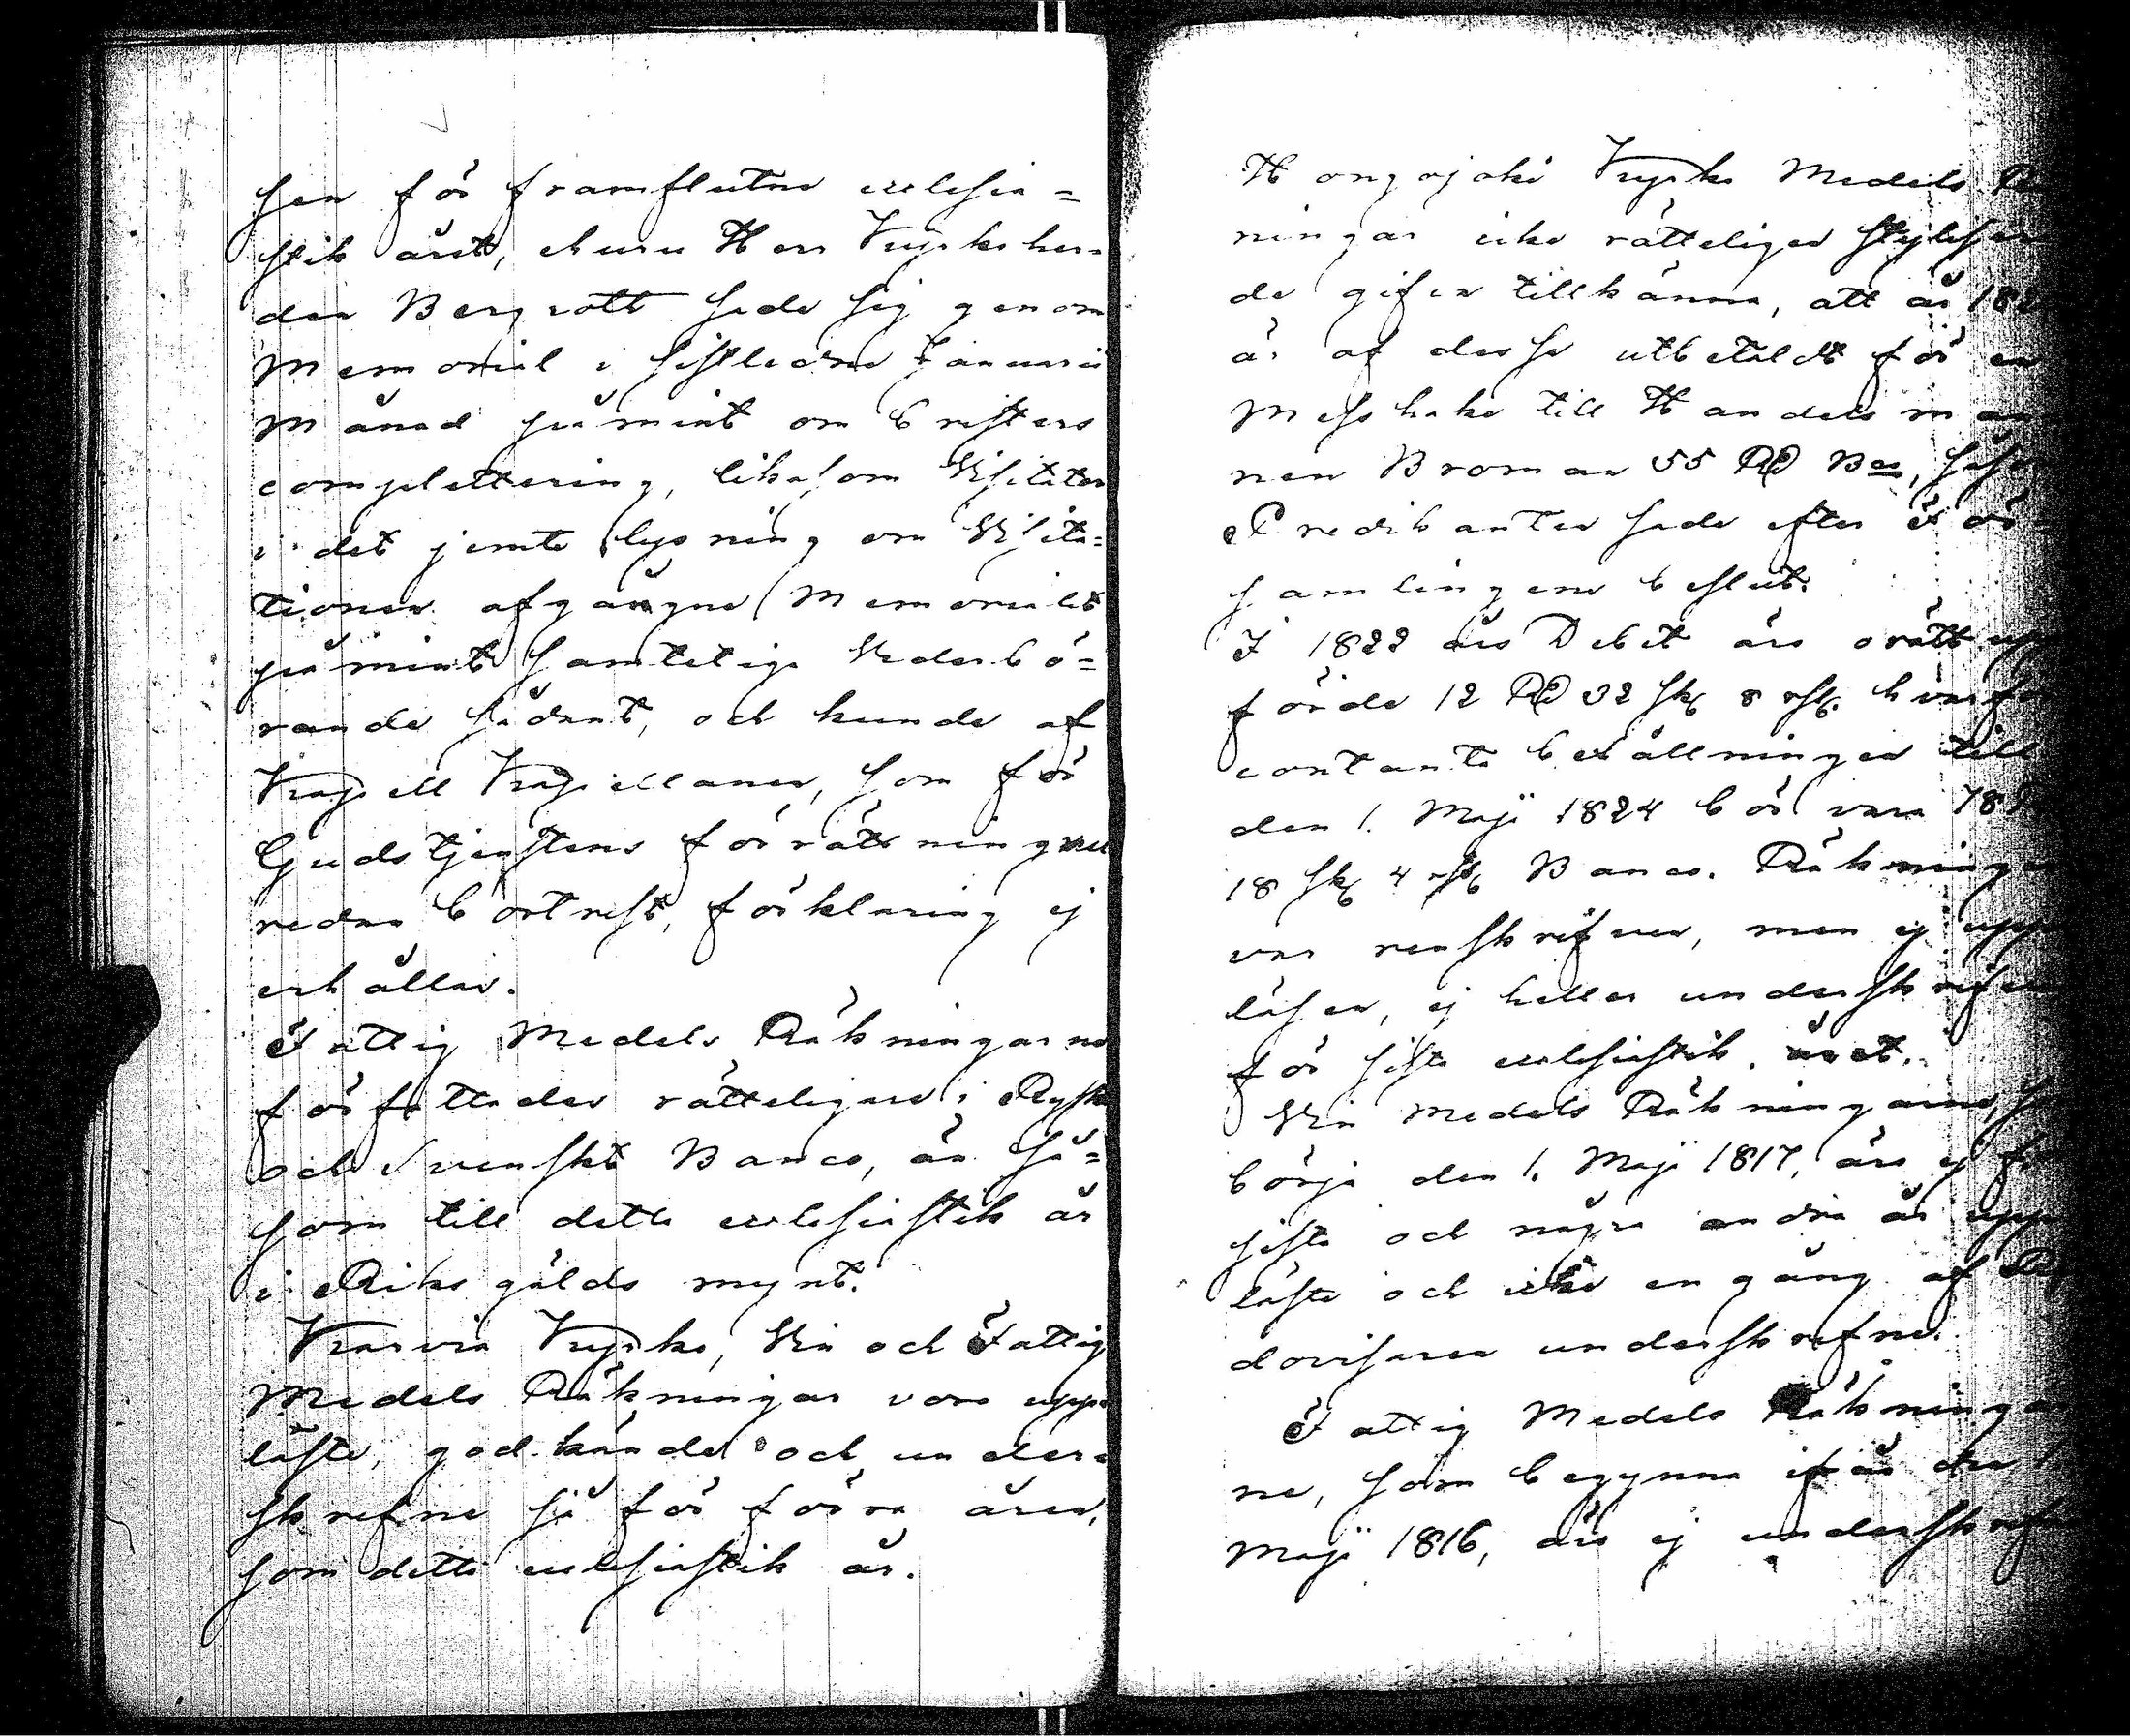 sen för framflutna ecclesia=
stik året, ehuru Herr Kyrkoher=
den Bergroth hade sig genom
Memorial i sistledne Januarii
Månad påmint om bristens
complettering, likasom Visitator
i det jemte lysning om Visita=
tionen afgångne Memorialet
påmint samtelige Vederbö=
rande sådant, och kunde af
Kapell Kapellanen, som för
Gudstjenstens förrättning
redan bortrest, förklaring ej
erhållas.
Fattig Medels Räkningarne
författades rätteligare i Ryskt
och Svenskt Banco, än så=
som till detta ecclesiastik år
i Riksgälds mynt.
Karvia Kyrko, Vin och Fattig
Medels Räkningar voro upp=
läste, godkände och under=
skrefne så för förra åren,
som detta ecclesiastik år.
Hongojoki Kyrko Medels
ningar icke rätteligen
de gifva tillkänna, att år
är af desse utbetaldt för en
Messhake till Handels man
nen Broman 55 RD Bco,
Predikanten hade efter För=
samlingens beslut.
I 1822 års Debet äro orätt
förde 12 RD 32 sk 8 rst. hvarför
contanta behållningen till
den 1. Maji 1824 bör vara
18 sk 4 rst Banco. Räkningen
var renskrifven, men ej upp
läsen, ej heller underskrifven
för sista ecclesiastik året.
Vin Medels Räkningarne,
börja den 1. Maji 1817, äro ej för
sista och några andra år upp
läste och icke en gång af
dovisaren underskrefne.
Fattig Medels Räkningar
ne, som begynna ifrån den 1
Maji 1816, äro ej underskrefne